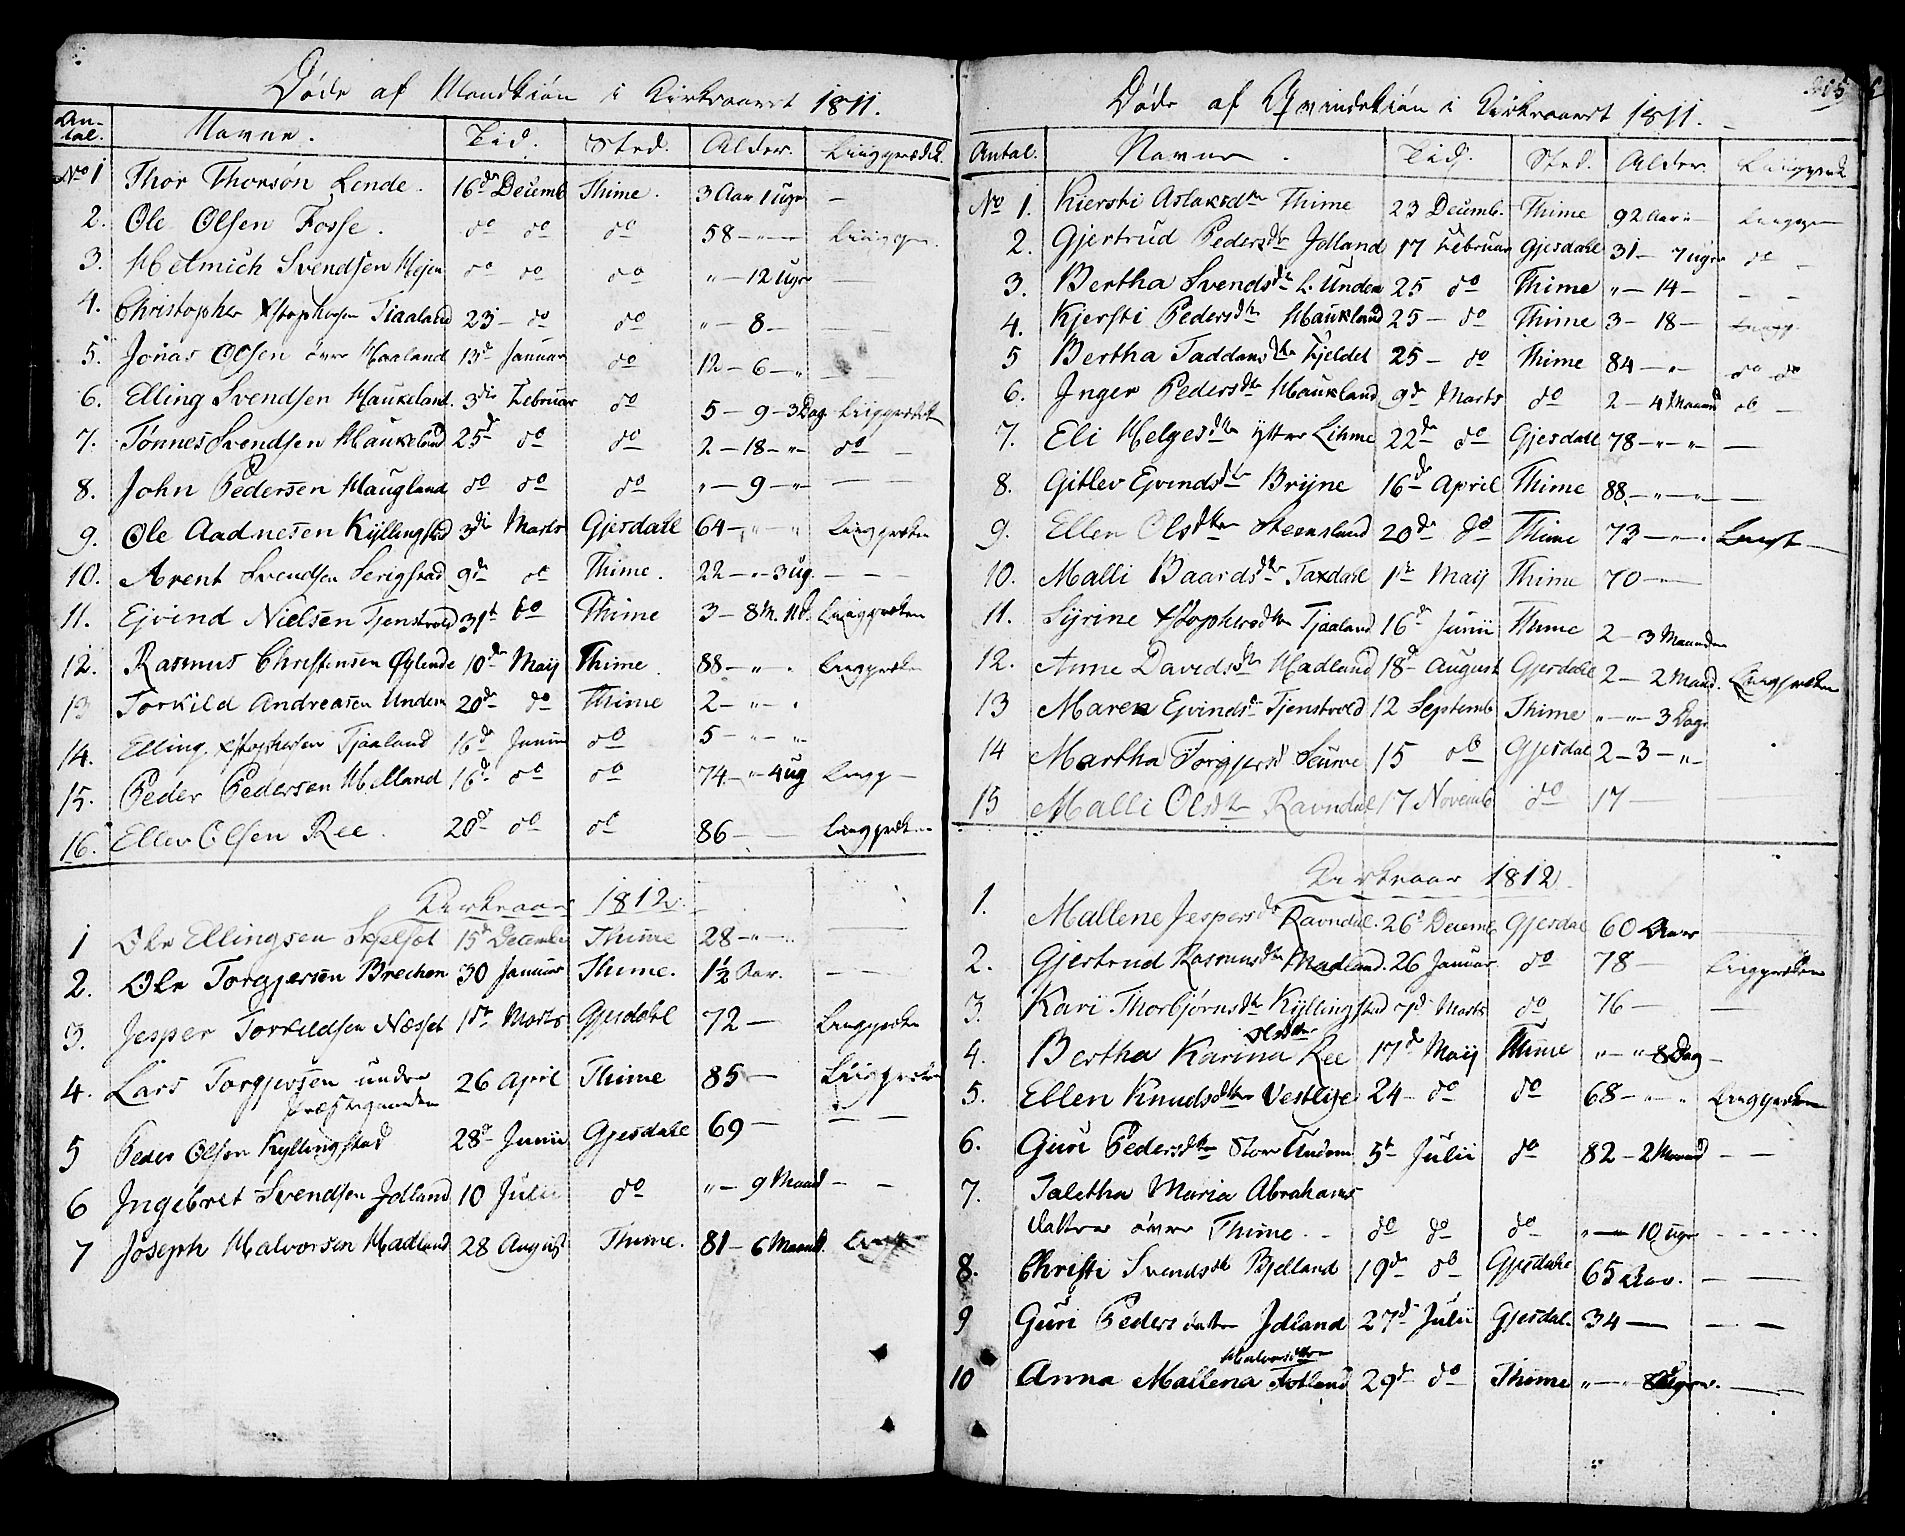 Døde af Mandkiøn i Kirkeaaret 1811.
An-
tal. Navne. Tid. Sted. Alder. Liigprædik.
No 1 Thor Thorsøn Lende. 16de Decemb Thime. 3 Aar 1 ugr —
2. Ole Olsen Fosse. do do do 58 — — Liigpr.
3. Helmich Svendsen Højen do do do " — 12 Ugr —
4. Christopher Xstophersen Tiaaland 23 — do do " — 8 — —
5. Jonas Olsen övre Haaland 13de Januar do 12 — 6 — " — —
6. Elling Svendsen Haukeland. 3die Februar do 5 — 9 — 3 Dag Liigprædik
7. Tønnes Svendsen Haukeland 25d do do 2 — 18 — " — do —
8. John Pedersen Haugland do do do " — 9 — " — — —
9. Ole Aadnesen Kyllingstad 3die Marts Gjesdahl 64 — " — " Liigpræken
10. Arent Svendsen Serigstad 9de do Thime. 22 — " — 3 ug. — — —
11. Ejvind Nielsen Tjenstvold 31t do Thime 3 — 8 M. Liigpræken
12. Rasmus Christensen Øylende 10de Maij Thime. 88 — " . Liigpræken
13 Torkild Andreasen Undem 20de do Thime 2 — " — "
14. Elling Xstophersen Tjaaland 16de Junii do 5 — " — "
15. Peder Pedersen Helland 16d. do do 74 — " 4 ug Liigp —
16. Eller Olsen Ree. 20de do do 86 — — Liigpræken
Kirkeaar 1812.
1 Ole Ellingsen Skjelset 15de Decembr Thime 28 — " — —
2. Ole Torgjersen Brechen 30 Januar Thime. 1½ Aar. — —
3. Jesper Torkildsen Næsset 1ste Marts Gjesdahl 72 — Liigpræken
4. Lars Torgjersen under 26 April Thime 85 — Liigpræken
Præstegaarden
5 Peder Olsen Kyllingstad 28de Junii Gjesdahl 69 — — —
6 Ingebret Svendsen Jdland 10 Julii do " — 9 Maand — —
7 Joseph Halvorsen Hadland 28 August Thime. 81 — 6 Maand.
Døde af Qvindekiøn i Kirkeaaret 1811.
Antal. Navne. Tid. Sted. Alder. Liigpræk
No 1. Kiersti Aslaksdtr Thime 23 Decemb. Thime 92 Aar Liigpr
2. Gjertrud Pedersdtr Jdland 17 Februar Gjesdahl 31 — 7 ugr do —
3. Bertha Svendsdtr L. Undem 25 do Thime " — 14 — — —
4. Kjersti Pedersdtr Haukland 25 — do Thime 3 — 18 — Liigp
5 Bertha Taddansdtr Fjeldet 25 — do Thime 84 — " — do do
6. Inger Pedersdtr Haukland 9de Marts do 2 — 4 Maaned do —
7. Eli Helgesdtr Ytter Lihme 22de do Gjesdahl 78 — " — " —
8. Gitlev Ejvindsdtr Brijne 16de April Thime 88 — " — " —
9. Ellen Olsdtr Steensland 20de do Thime 73 — " — "
10. Malli Baardsdtr Taxdahl 1ste Maij Thime 70 — " —
11. Syrine Xstophersdtr Tjaaland 16d Junii Thime 2 — 3 Maaneder
12. Anne Davidsdtr Hadland 18d August Gjesdahl 2 — 2 Maand. Liigpræken
13 Maren Ejvindsd Tjenstvold 12 Septemb Thime " — " — 3 Dage
14 Martha Torgjersd Seume 15 do Gjesdal 2 — 3 — " —
15 Malli Olsdtr Ravndal 17 Novemb do 17 — —
Kirkeaar 1812.
1. Mallene Jespersdr Ravndal. 26d Decemb Gjesdal 60 Aar —
2. Gjertrud Rasmusdtr Madland. 26 Januar. do 78 — Liigpræken
3. Kari Thorbjørnsdtr Kyllingstad 7d Marts do 76 — —
Olsdtr
4. Bertha Karina Ree 17d Maij Thime " — " 8 Dag —
5. Ellen Knudsdtr Vestlye 24 — do do 68 — " — " Liigpræken
6. Guri Pedersdtr Store Undem 5t Julii do 82 — 2 Maand — —
7. Taletha Maria Abrahams
datter övre Thime. — do do do " — 10 ugr - - - -
8. Christi Svendsdt Bjelland 19de do Gjesdahl 65 Aar. — —
9 Guri Peders datter Jdland 27d Julii Gjesdal 34 — — —
Halvorsdtter
10 Anna Mallena Fotland 29de do Thime " — " 8 Uger. —